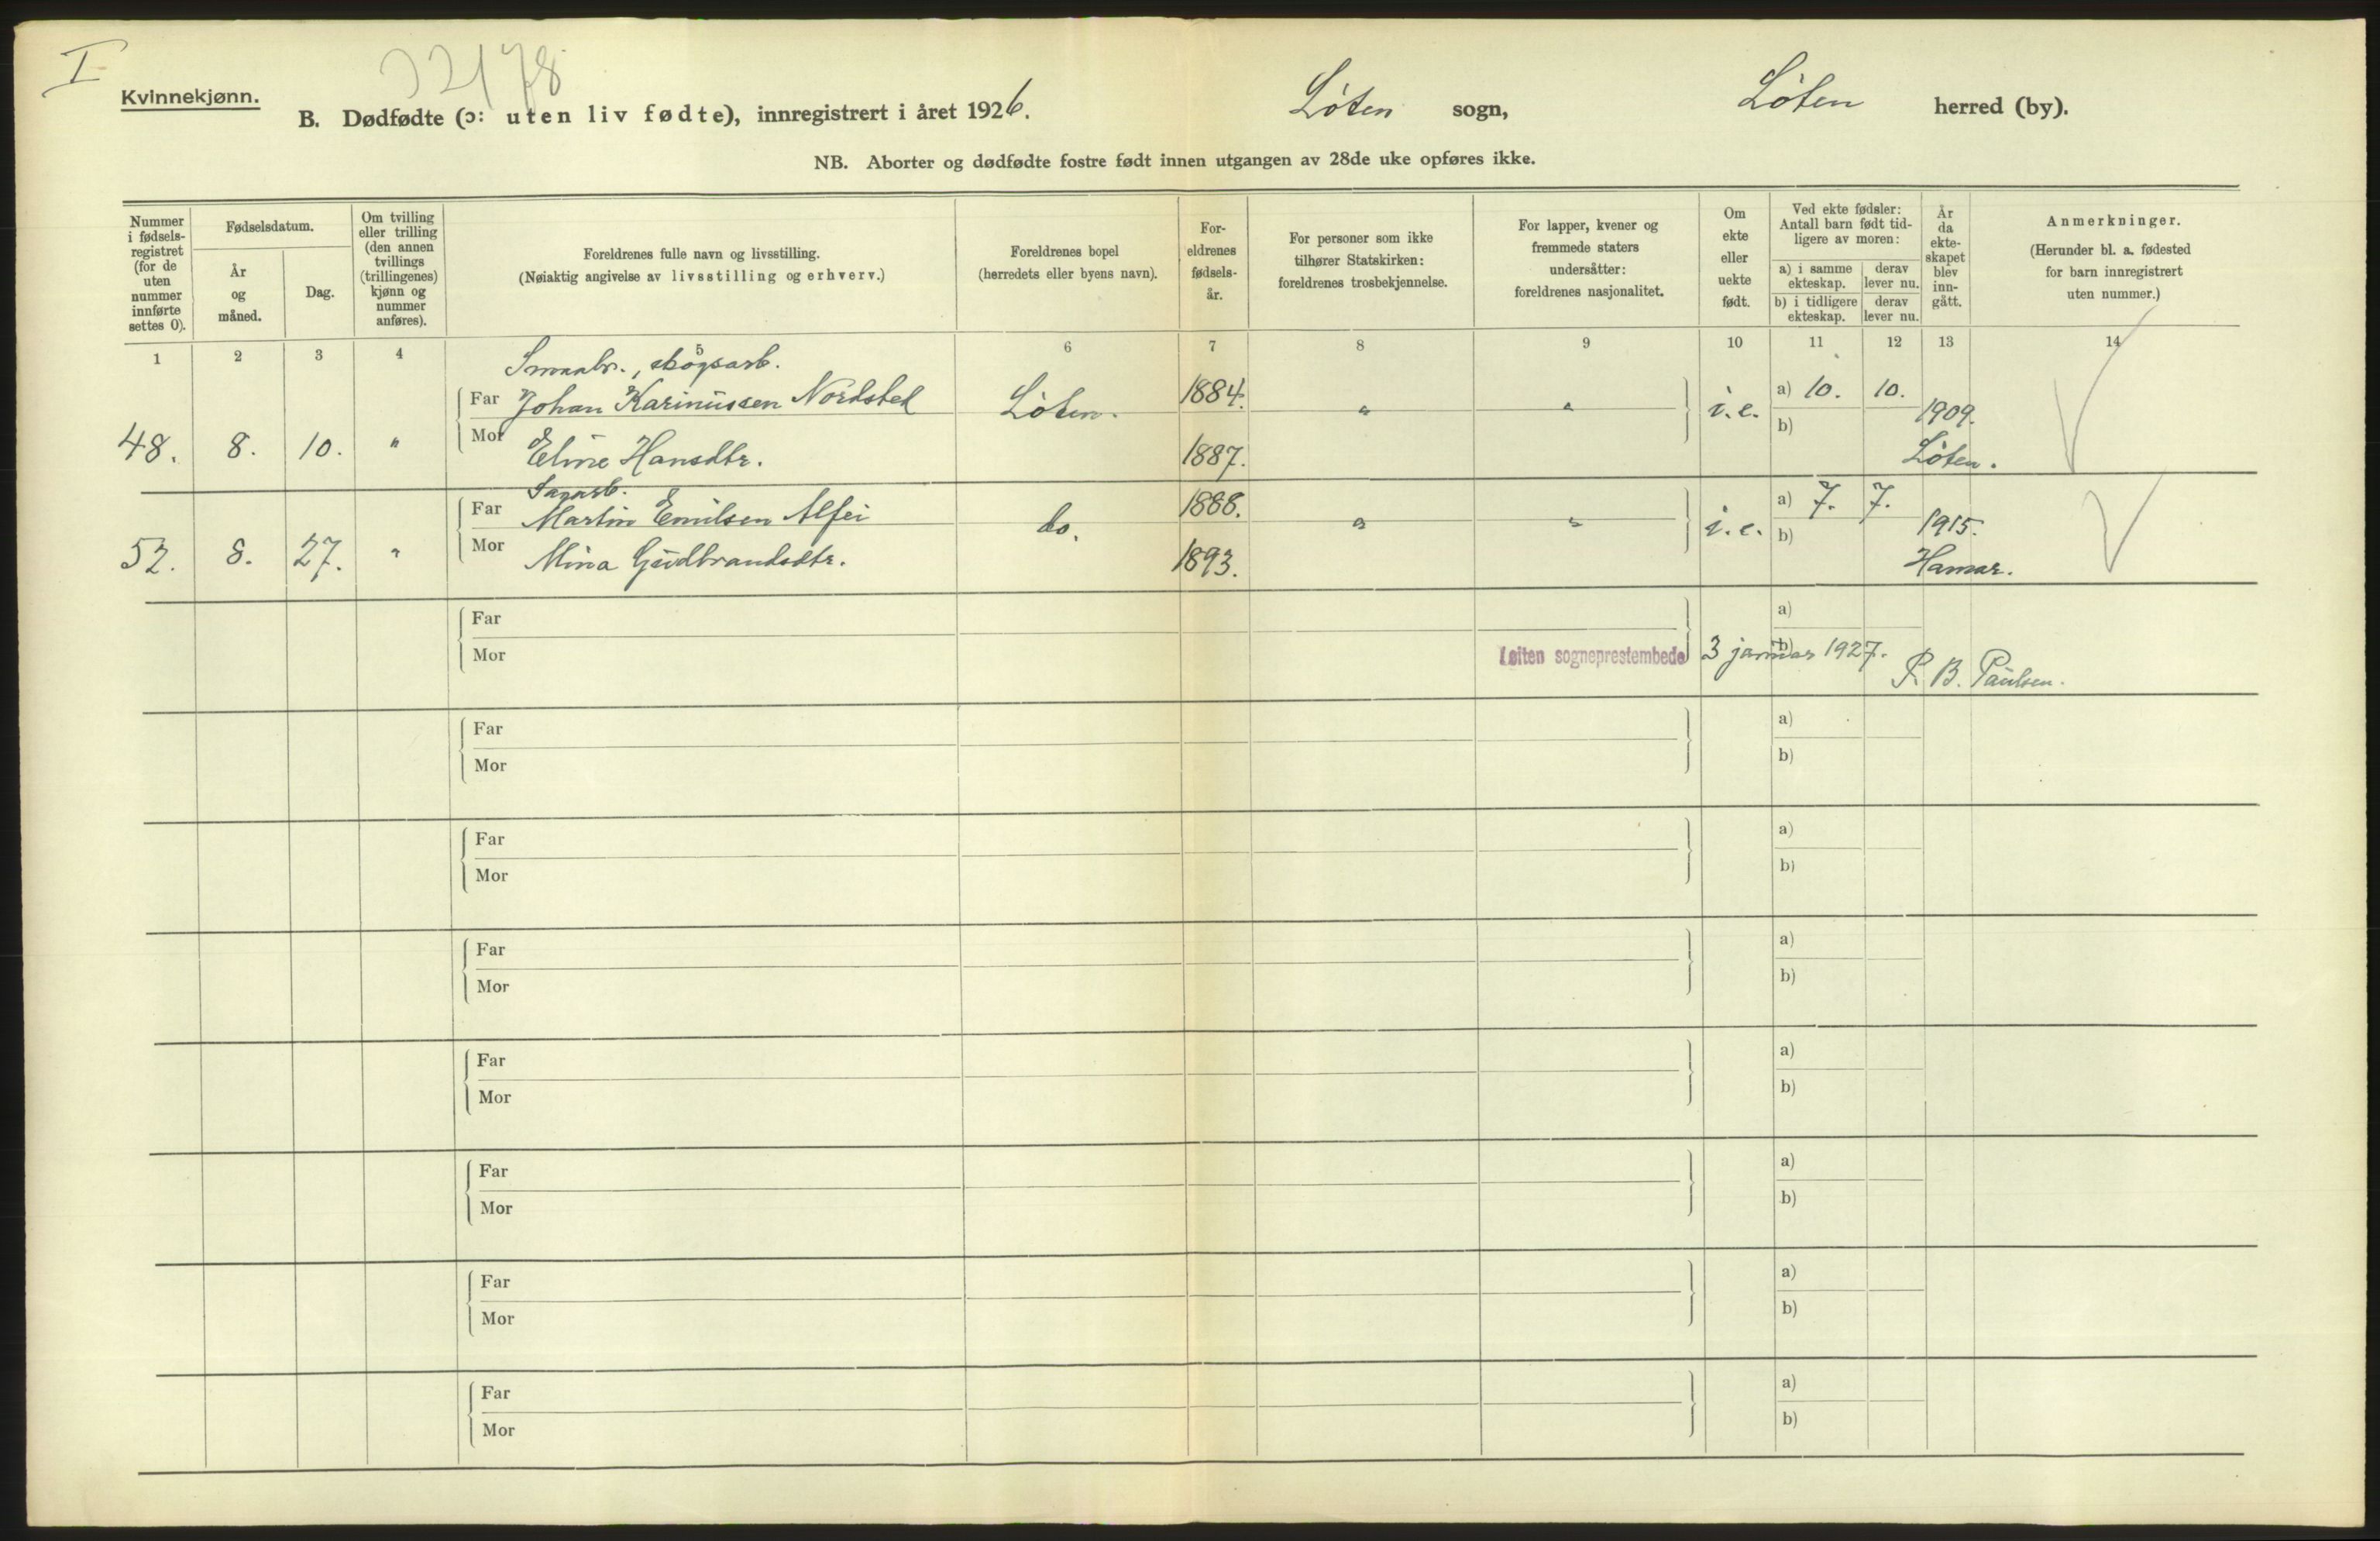 I
32178
Kvinnekjønn.
B. Dødfødte (ɔ: uten liv fødte), innregistrert i året 1926. Løten sogn, Løten herred (by).
NB. Aborter og dødfødte fostre født innen utgangen av 28de uke opføres ikke.
Nummer i fødsels-registret (for de uten nummer innførte settes 0).
Fødselsdatum.
År og måned.
Dag.
Om tvilling eller trilling (den annen tvillings (trillingenes) kjønn og nummer anføres).
Foreldrenes fulle navn og livsstilling.
(Nøiaktig angivelse av livsstilling og erhverv.)
Foreldrenes bopel
(herredets eller byens navn).
For-eldrenes fødsels-år.
For personer som ikke tilhører Statskirken: foreldrenes trosbekjennelse.
For lapper, kvener og fremmede staters undersåtter: foreldrenes nasjonalitet.
Om ekte eller uekte født.
Ved ekte fødsler: Antall barn født tid-ligere av moren:
a) i samme ekteskap. derav lever nu.
b) i tidligere ekteskap. derav lever nu.
År da ekte-skapet blev inn-gått.
Anmerkninger.
(Herunder bl. a. fødested for barn innregistrert uten nummer.)
1 2 3 4 5 6 7 8 9 10 11 12 13 14
Smaabr., skogsarb.
Far Johan Karinussen Nordsted Løten. 1884. " " i. e. a) 10. 10. 1909.
48. 8. 10. " Mor Eline Hansdtr. 1887. b) Løten.
Sagarb.
Far Martin Emilsen Alfei do. 1888. " " i. e. a) 7. 7. 1915.
52. 8. 27. " Mor Mina Gudbrandsdtr. 1893. b) Hamar.
Far a)
Mor Løiten sogneprestembede 3 januar 1927. b)
P. B. Paulsen.
Far a)
Mor b)
Far a)
Mor b)
Far a)
Mor b)
Far a)
Mor b)
Far a)
Mor b)
Far a)
Mor b)
Far a)
Mor b)